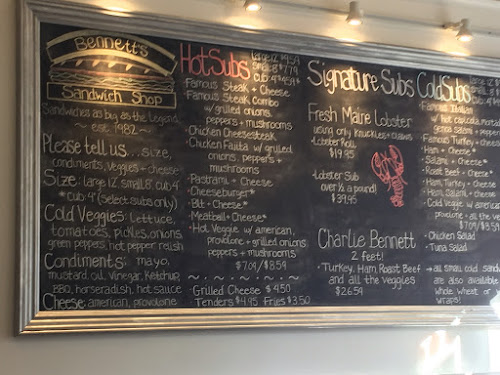 Bennett's
Sandwich Shop
Sandwiches as big as the Legend
~ est. 1982 ~
Please tell us... size,
condiments, veggies + cheese
Size: large 12" small 8" cub 4"
*cub 4" (select subs only)
Cold Veggies: lettuce,
tomatoes, pickles, onions,
green peppers, hot pepper relish
Condiments: mayo,
mustard, oil, vinegar, ketchup,
BBQ, horseradish, hot sauce
Cheese: american, provolone
Hot Subs
Famous Steak + Cheese
Famous Steak Combo
w/ grilled onions,
peppers + mushrooms
Chicken Cheesesteak
Chicken Fajita w/ grilled
onions, peppers +
mushrooms
Pastrami + Cheese
Cheeseburger*
Blt + Cheese*
Meatball + Cheese*
Hot Veggie w/ american,
provolone + grilled onions
peppers + mushrooms
$7.09/$8.59
Grilled Cheese $4.50
Tenders $4.95 Fries $3.50
Signature Subs
Fresh Maine Lobster
using only knuckles + claws
Lobster Roll
$19.95
Lobster Sub
over ½ a pound!
$39.95
Charlie Bennett
2 feet!
Turkey, Ham, Roast Beef
and all the veggies
$26.59
Cold Subs
Famous Italian
w/ hot capicola,
genoa salami + pepper
Famous Turkey + chees
Ham + Cheese*
Salami + Cheese*
Roast Beef + Cheese*
Ham, Turkey + Cheese
Ham, Salami + Cheese
Cold Veggie w/ american
provolone + all the v
$7.09/$8.59
Chicken Salad
Tuna Salad
→ all small cold sand
are also available
whole wheat or
wraps!